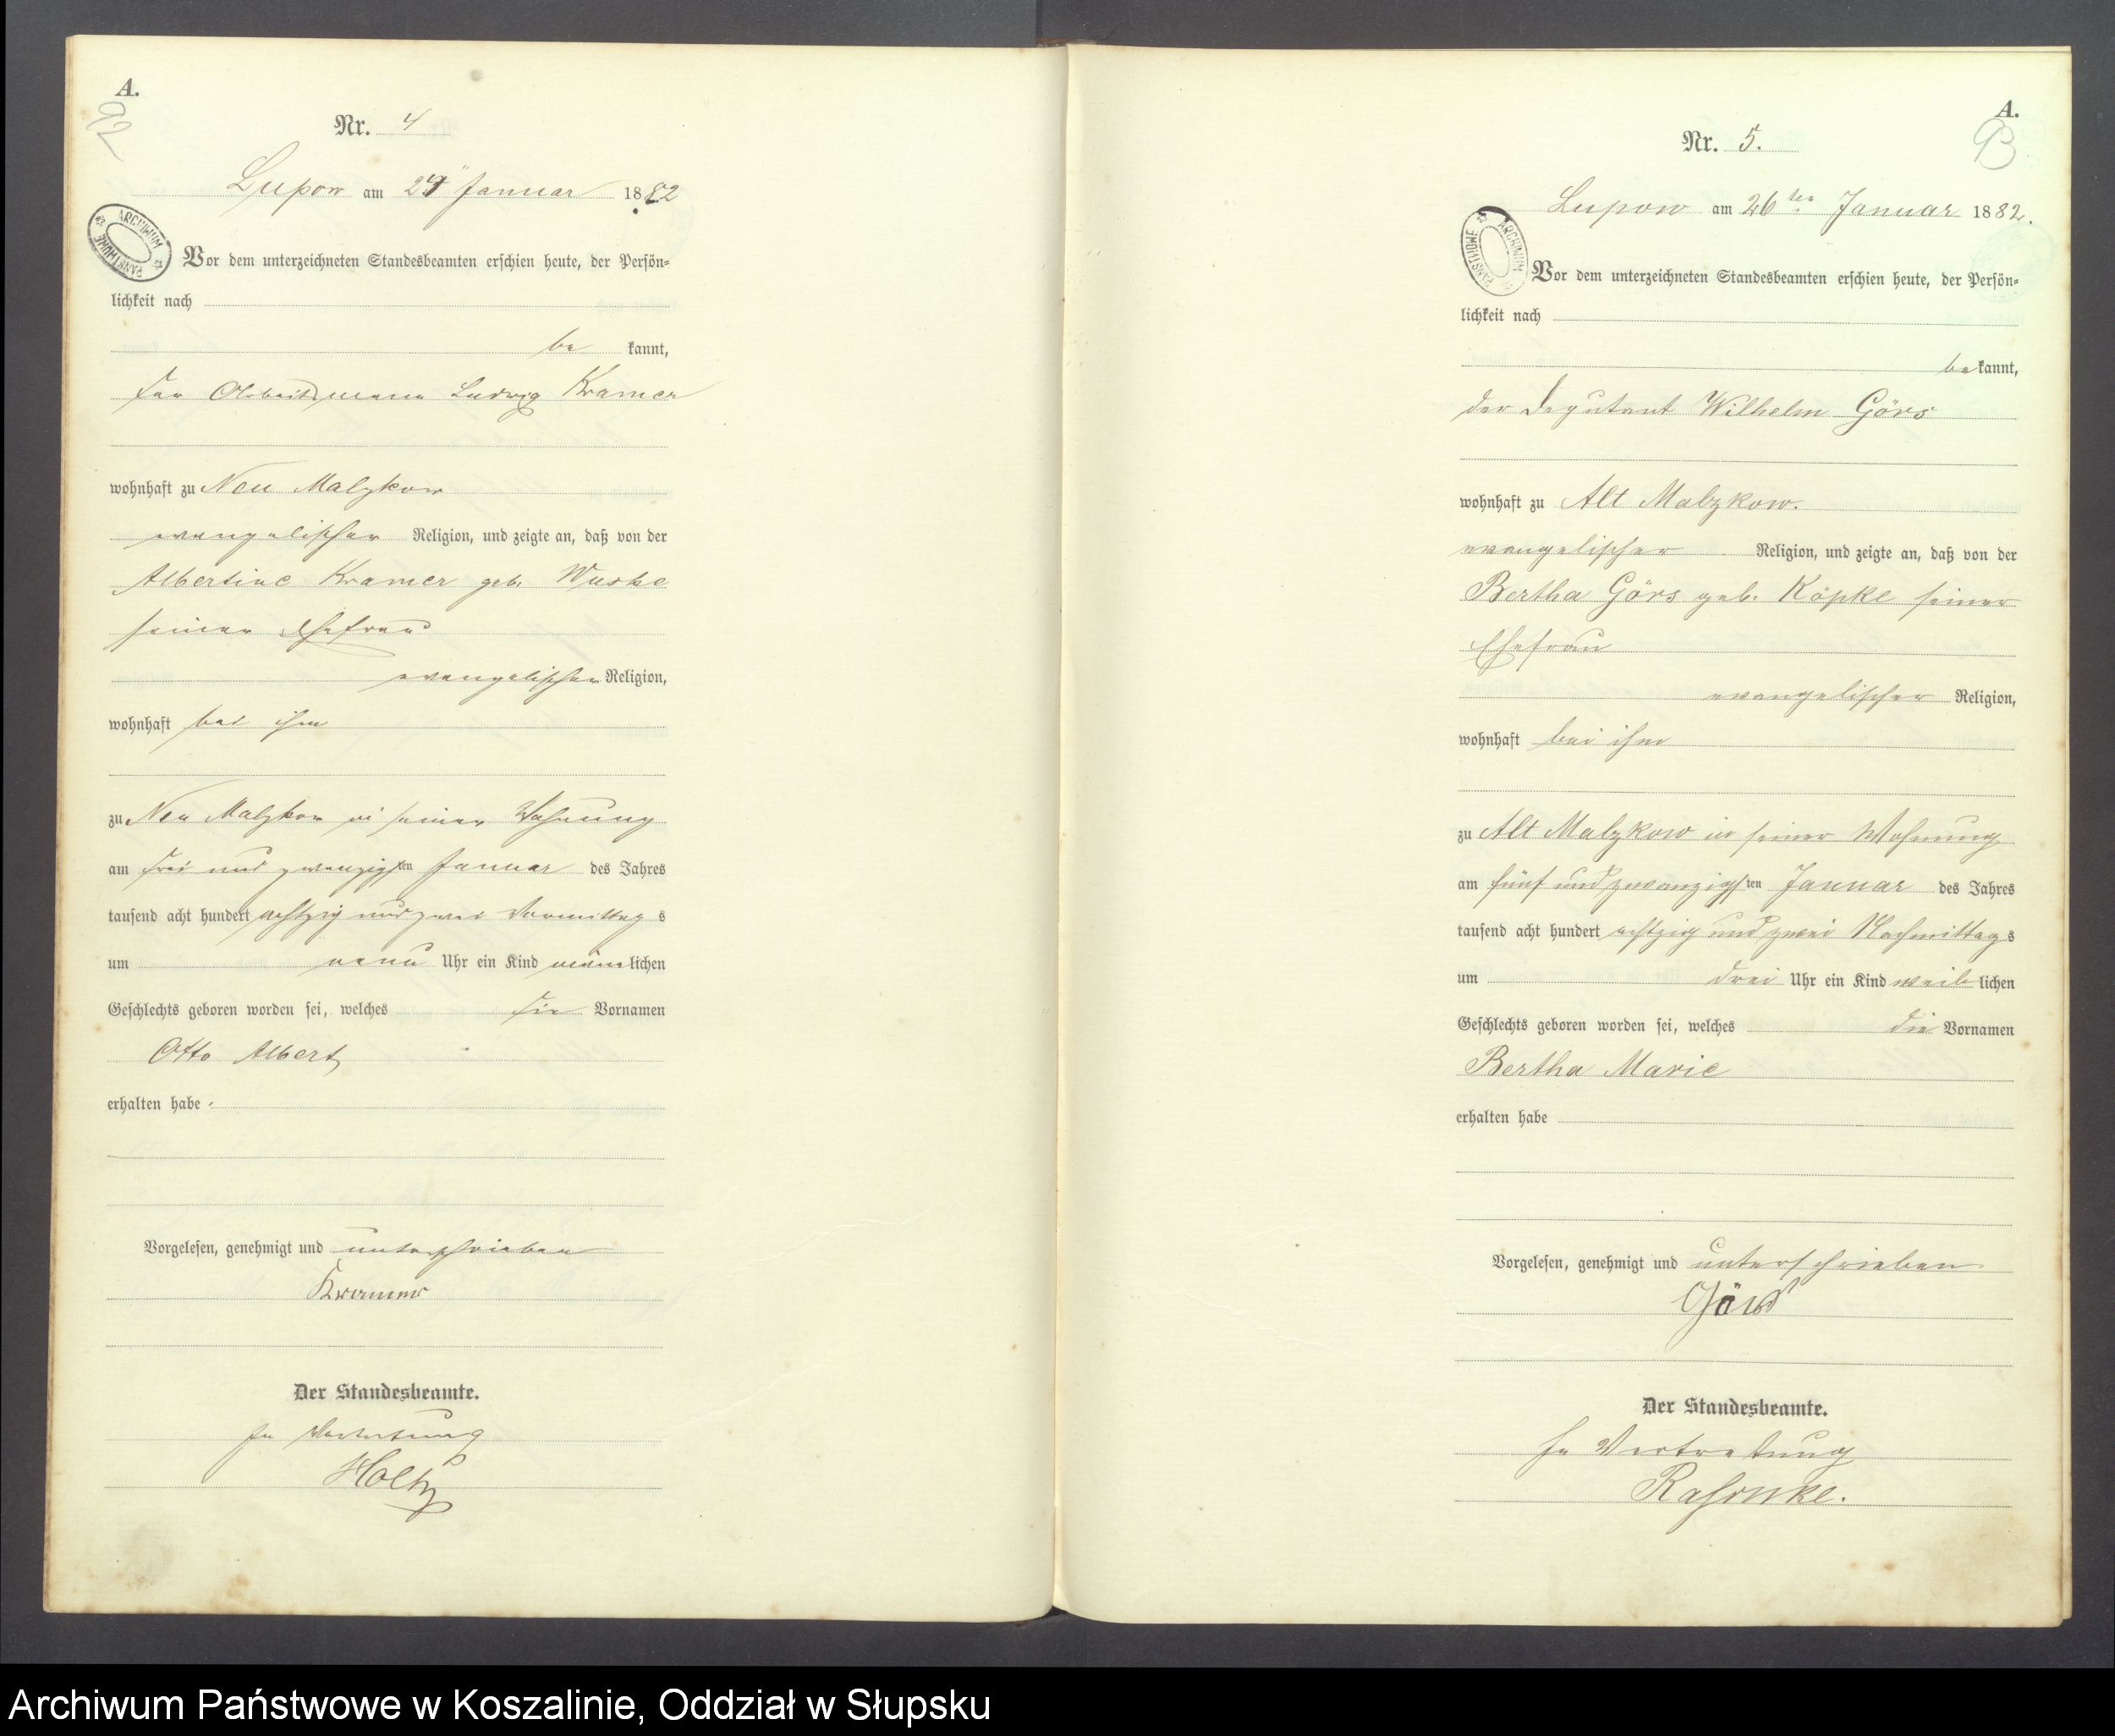 A.
92
Nr. 4
Lupow am 24 Januar 1882
ARCHIWUM PAŃSTWOWE
Vor dem unterzeichneten Standesbeamten erschien heute, der Persön-
lichkeit nach
be kannt,
der Arbeitsmann Ludwig Kramer
wohnhaft zu Neu Malzkow
evangelischer Religion, und zeigte an, daß von der
Albertine Kramer geb. Wuske
seiner Ehefrau
evangelischer Religion,
wohnhaft bei ihm
zu Neu Malzkow in seiner Wohnung
am drei und zwanzigsten Januar des Jahres
tausend acht hundert achtzig und zwei Vormittags
um neun Uhr ein Kind männlichen
Geschlechts geboren worden sei, welches die Vornamen
Otto Albert
erhalten habe.
Vorgelesen, genehmigt und unterschrieben
Kramer
Der Standesbeamte.
In Vertretung
Holtz
A.
93
Nr. 5.
Lupow am 26ten Januar 1882.
ARCHIWUM PAŃSTWOWE
Vor dem unterzeichneten Standesbeamten erschien heute, der Persön-
lichkeit nach
bekannt,
der Deputant Wilhelm Görs
wohnhaft zu Alt Malzkow.
evangelischer Religion, und zeigte an, daß von der
Bertha Görs geb. Köpke seiner
Ehefrau
evangelischer Religion,
wohnhaft bei ihm
zu Alt Malzkow in seiner Wohnung
am fünf und zwanzigsten Januar des Jahres
tausend acht hundert achtzig und zwei Nachmittags
um drei Uhr ein Kind weiblichen
Geschlechts geboren worden sei, welches die Vornamen
Bertha Marie
erhalten habe
Vorgelesen, genehmigt und unterschrieben
Görs
Der Standesbeamte.
In Vertretung
Archiwum Państwowe w Koszalinie, Oddział w Słupsku